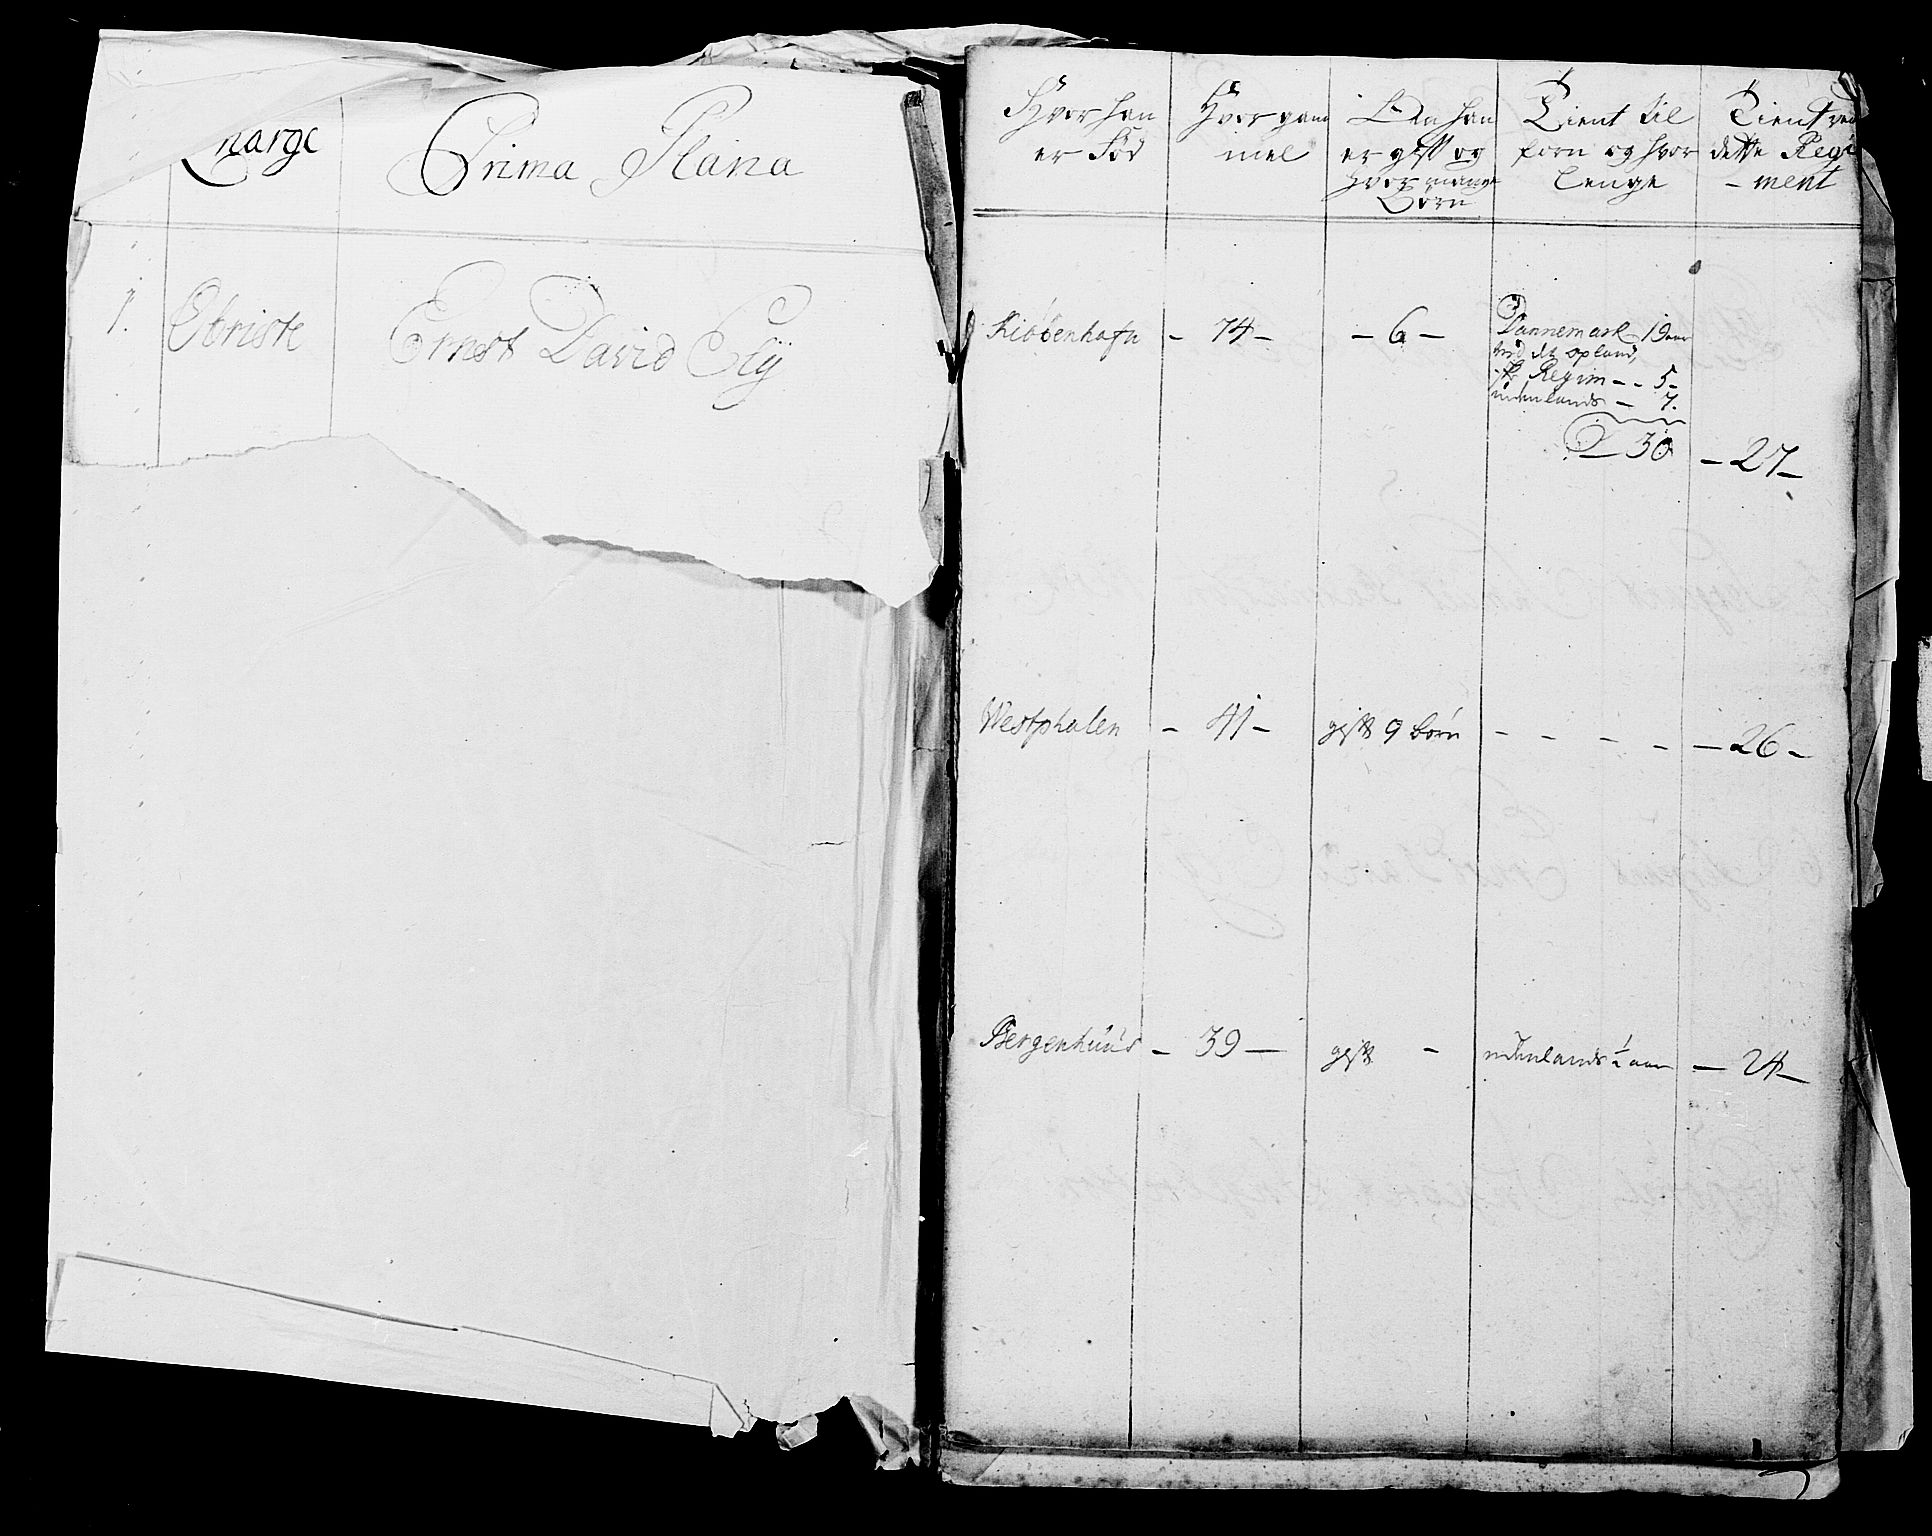 Charge
Prima Plana
1. Obriste Ernst David Ely
Hvor han
er Fød
Hvor gam
mel
Om han
er gift og
hvor mange
Børn
Tient til
forn og hvor
lenge
Tient ved
dette Regi
- ment
Kiøbenhafn - 74 - - 6 - Dannemark 19 aar
ved det opland,
sk: Regim - - 5 -
udenlands - 7.
30 - 27 -
Westphalen - 41 - gift 9 børn - - - - - 26 -
Bergenhuus - 39 - gift - udenlands ½ aar - 24 -